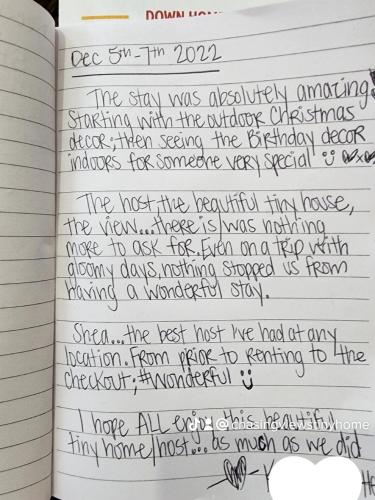 DOWN HOM
Dec 5th-7th 2022
The stay was absolutely amazing.
Starting with the outdoor Christmas
decor; then seeing the Birthday decor
indoors for someone very special
The host the beautiful tiny house,
the view...there is/was nothing
more to ask for. Even on a trip with
gloomy days, nothing stopped us from
having a wonderful stay.
Shea...the best host I've had at any
location. From prior to renting to the
checkout; #Wonderful
@chasingviewstinyhome
I hope ALL enjoy this beautiful
tiny home/host... as much as we did